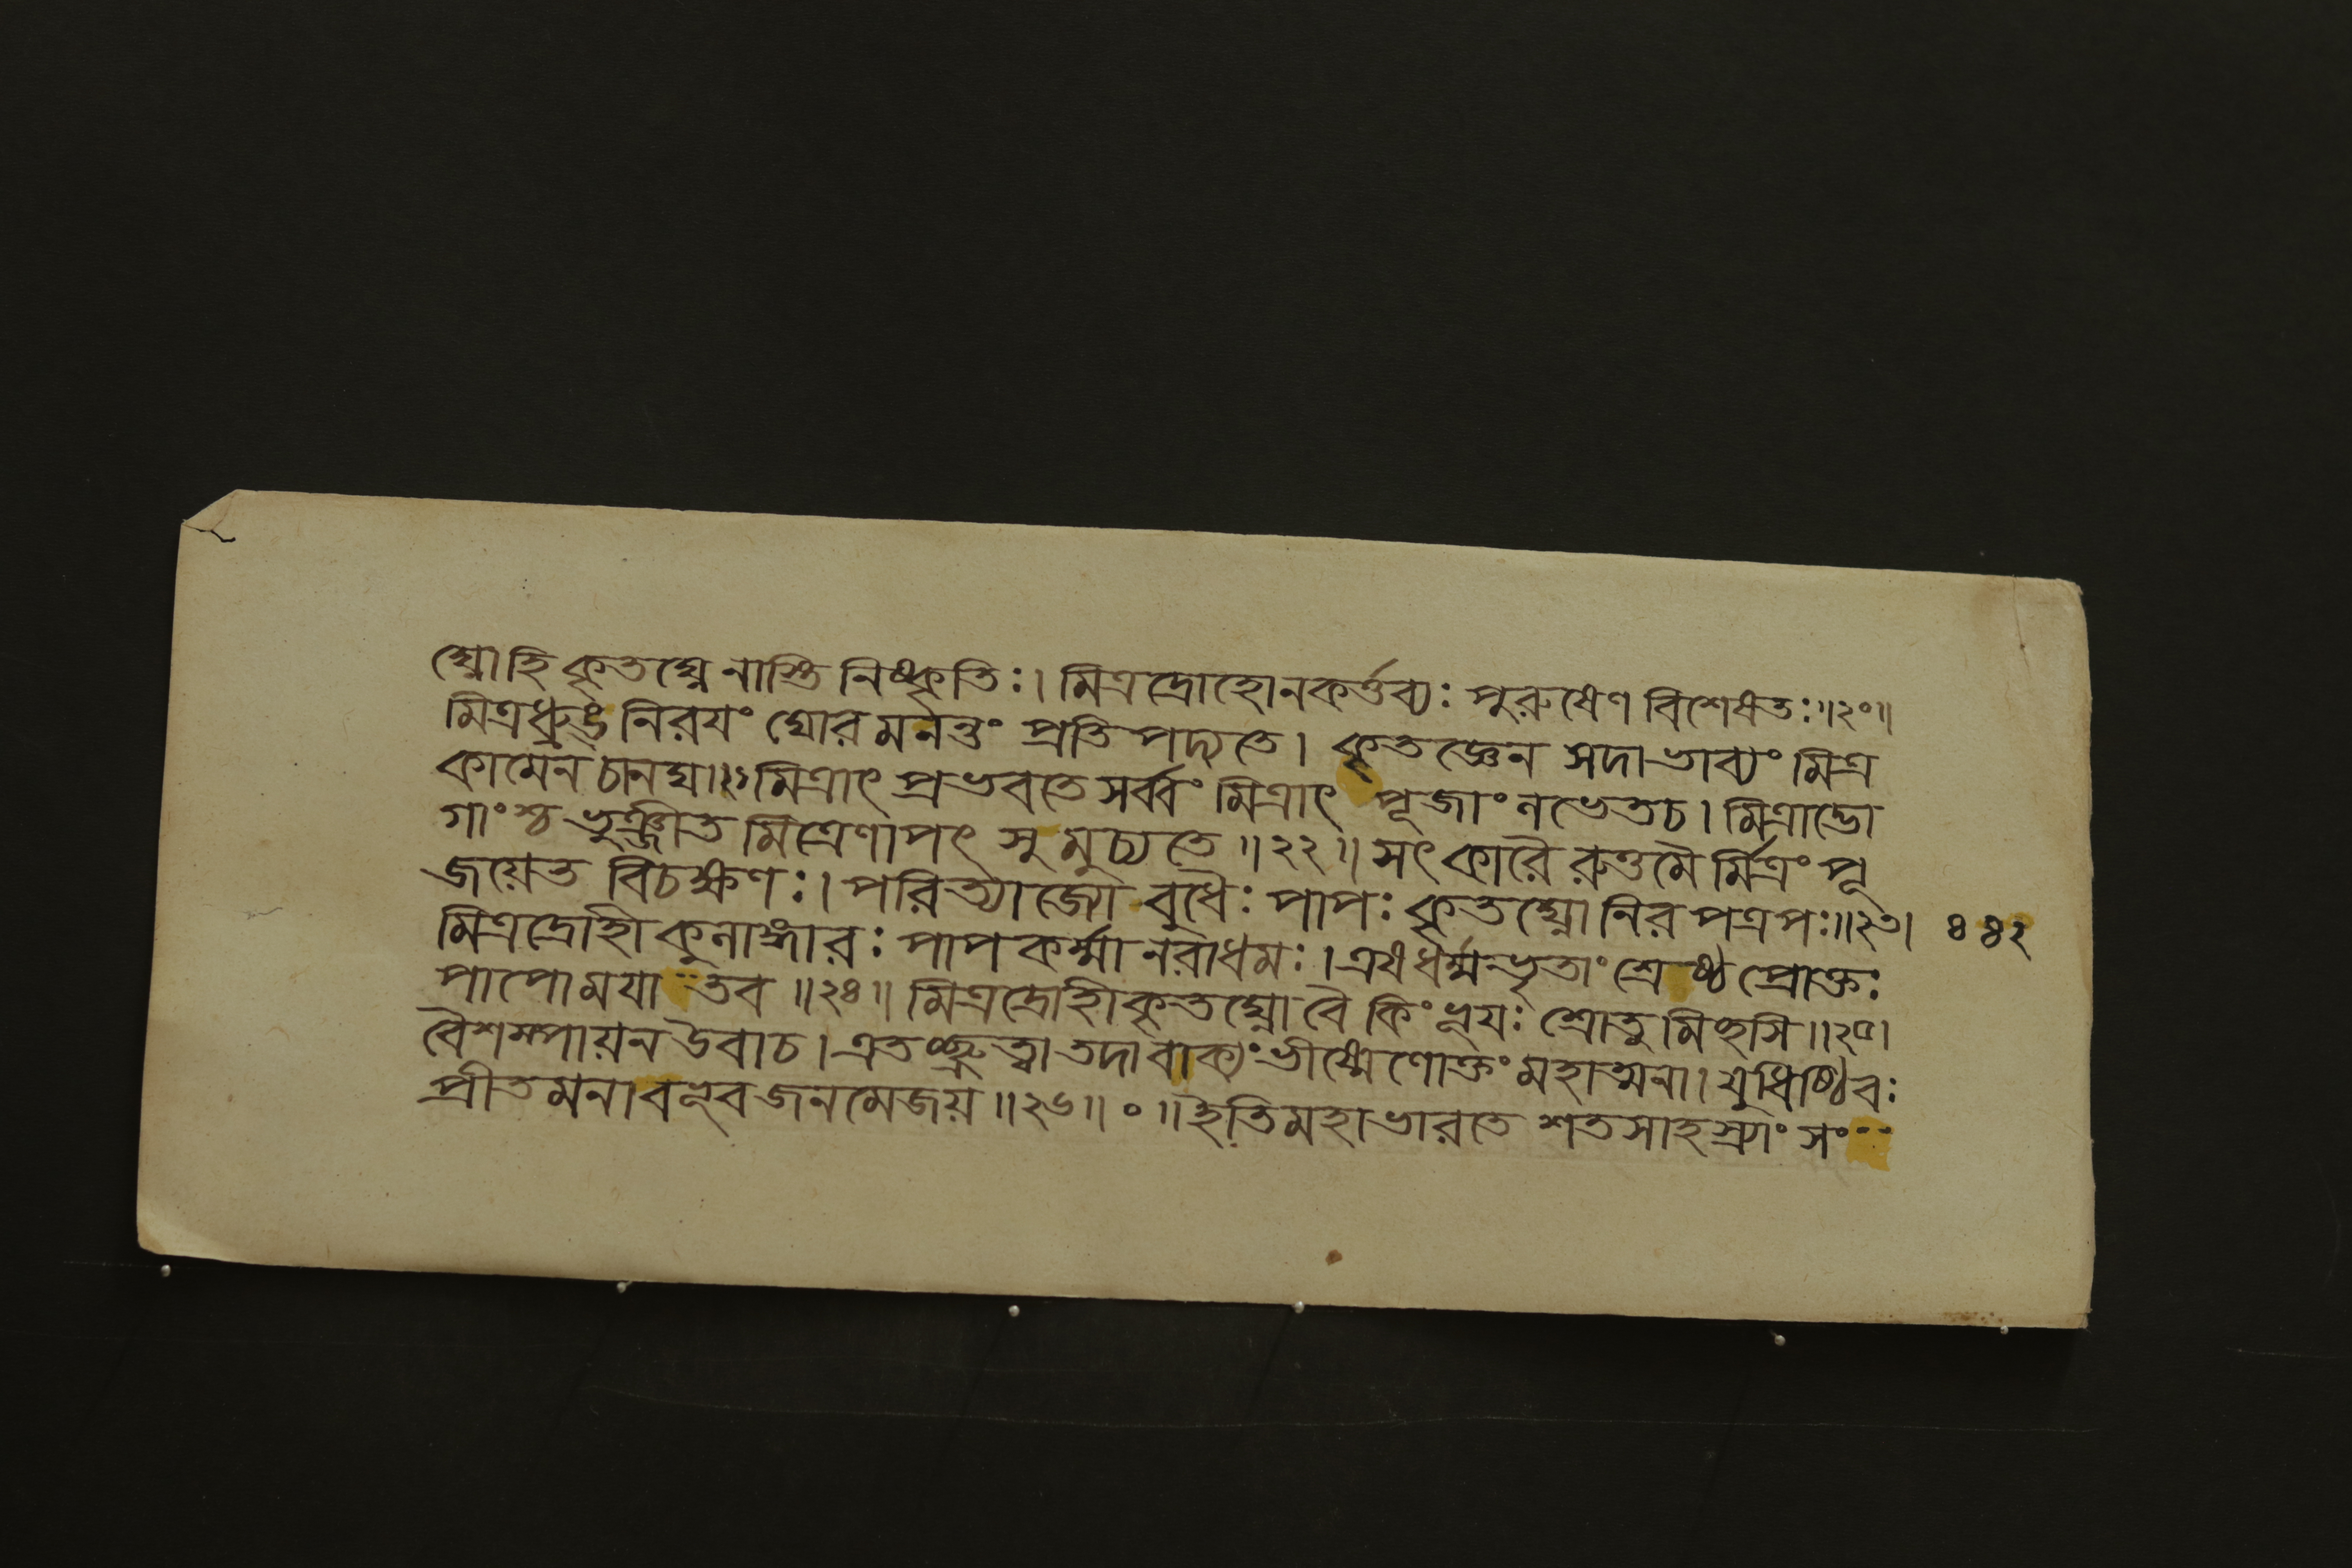 ঘ্নোহি কৃতঘ্নে নাস্তি নিষ্কৃতিঃ। মিত্রদ্রোহোনকর্ত্তব্যঃ পুরুষেণ বিশেষতঃ॥২০॥
মিত্রধ্রুঙ্ নিরযং ঘোর মনন্তং প্রতি পদ্যতে। কৃতজ্ঞেন সদা ভাব্যং মিত্র
কামেন চানঘ॥২১ মিত্রাৎ প্রভবতে সর্ব্বং মিত্রাৎ পূজাং লভেত চ। মিত্রাদ্ভো
গাংশ্চ ভুঞ্জীত মিত্রেণাপৎ সু মুচ্যতে॥২২॥ সৎ কারৈ রুত্তমৈ র্মিত্রং পূ
জয়েত বিচক্ষণঃ। পরিত্যাজ্যো বুধৈঃ পাপঃ কৃতঘ্নো নির পত্রপঃ॥২৩। ৪৪২
মিত্রদ্রোহী কুলাঙ্গারঃ পাপ কর্ম্মা নরাধমঃ। এষ ধর্ম্মভৃতাং শ্রেষ্ঠ প্রোক্তঃ
পাপো ময়া তব॥২৪॥ মিত্রদ্রোহী কৃতঘ্নো বৈ কিং ভূযঃ শ্রোতু মিচ্ছসি॥২৫।
বৈশম্পায়ন উবাচ। এতচ্ছ্রুত্বা তদা বাক্যং ভীষ্মেণোক্তং মহাত্মনা। যুধিষ্ঠিরঃ
প্রীতমনা বভূব জনমেজয়॥২৬॥০॥ ইতি মহাভারতে শতসাহস্র্যাং সং